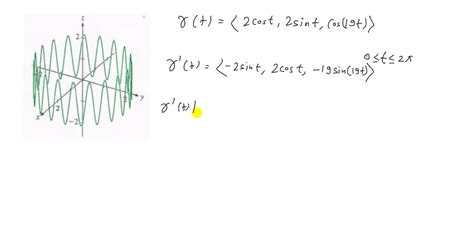 z
2
-2
2
-2
2
x
y
r(t) = ⟨2cost, 2sint, cos(19t)⟩
r'(t) = ⟨-2sint, 2cost, -19sin(19t)⟩
0≤t≤2π
r'(t)|